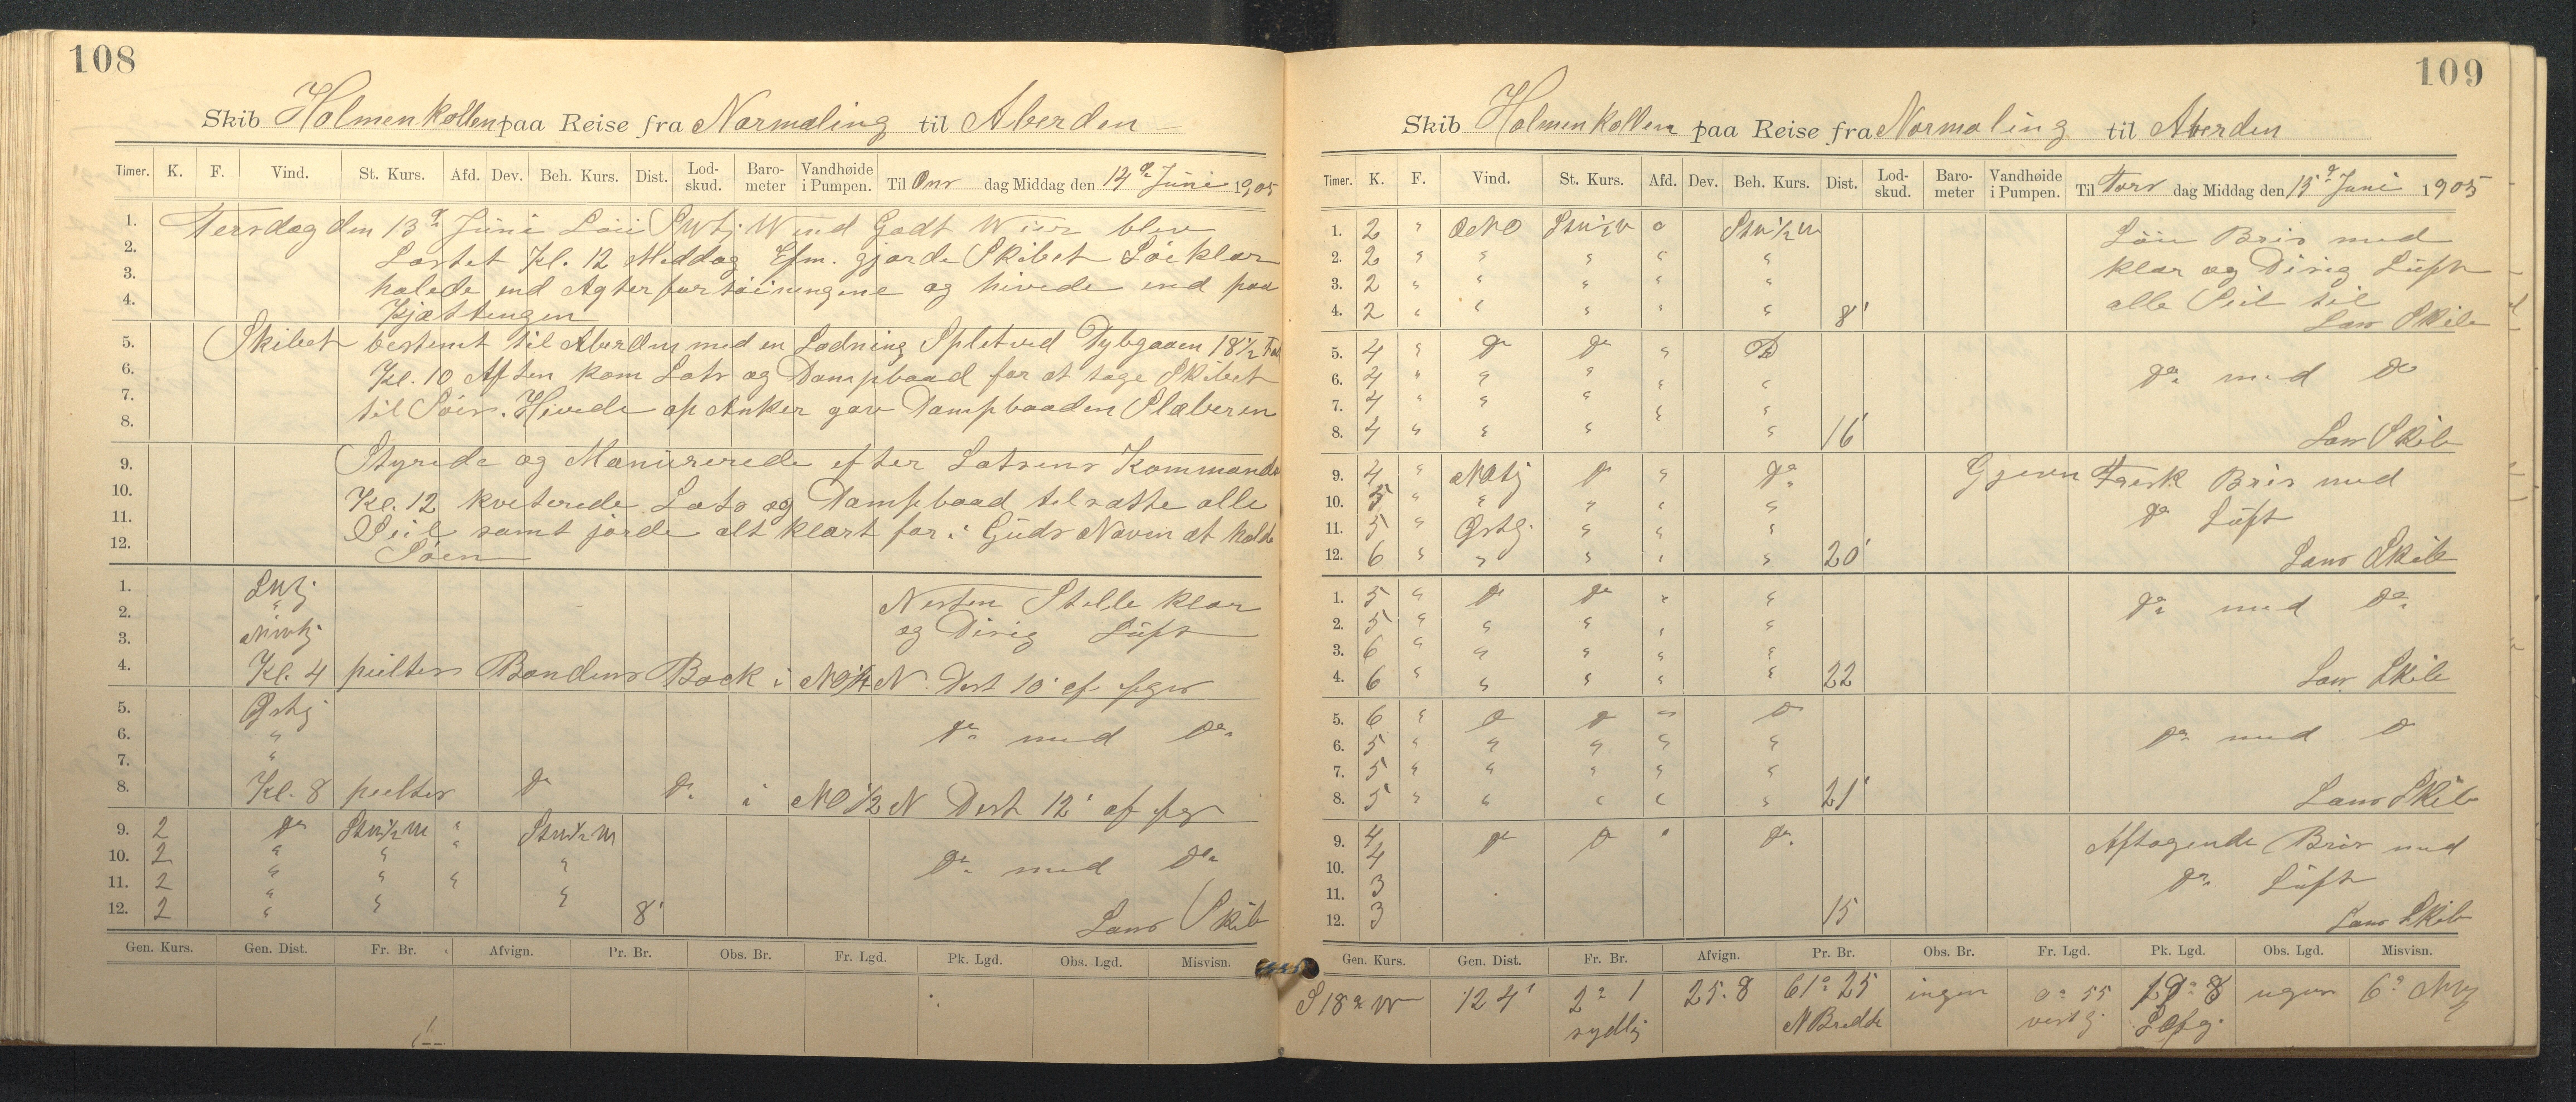 108
Skib Holmenkollen paa Reise fra Normaling til Aberden
Timer. K. F. Vind. St. Kurs. Afd. Dev. Beh. Kurs. Dist. Lod-skud. Baro-meter Vandhøide i Pumpen. Til Ons dag Middag den 14de Juni 1905
1. Tersdag den 13de Juni Löi Swtj. Wind Godt blev
2. Lastet Kl. 12 Middag Efm. gjorde Skibet Söeklar
3. halede ind Agterfortöiningene og hivede ind paa
4. Kjættingen
5. Skibet bestemt til Aberden med en Ladning Dybgaaen 18½ Fod
6. Kl. 10 Aften kom Lots og Dampbaad for at tage Skibet
7. til Söes. Hivede op Anker gav Dampbaaden Slæberen
8.
9. Styrede og Manürerede efter Lotsens Kommando
10. Kl. 12 kviterede Lots og Dampbaad tilsatte alle
11. Seil samt jorde alt klart for i Guds Navn at holde
12. Söen
1. Swtj Nesten Stille klar
2. " og Disig Lüft
3. NNWtj
4. Kl. 4 peiltes Bondens Back i NO¼N. Dist 10' af peges
5. Östtj
6. " do med do
7. "
8. Kl. 8 peiltes do do i NO ½ N Dist 12' af
9. 2 do Stw½W " Stw½W
10. 2 " " " " do med do
11. 2 " " " "
12. 2 " " " 8' Lans Skib
Gen. Kurs. Gen. Dist. Fr. Br. Afvign. Pr. Br. Obs. Br. Fr. Lgd. Pk. Lgd. Obs. Lgd. Misvisn.
109
Skib Holmenkollen paa Reise fra Normaling til Aberden
Timer. K. F. Vind. St. Kurs. Afd. Dev. Beh. Kurs. Dist. Lod-skud. Baro-meter Vandhøide i Pumpen. Til Tors dag Middag den 15de Juni 1905
1. 2 " ONO Stw½W o Stw½W Löi Bris med
2. 2 " " " " " klar og Disig Lüft
3. 2 " " " " " alle Seil til
4. 2 " " " " " 8' Lans Skib
5. 4 " do do " do
6. 4 " " " " " do med do
7. 4 " " " " "
8. 4 " " " " 16' Lans Skib
9. 4 " NOtj do " do Gjevn Frisk Bris med
10. 5 " " " " " do Lüft
11. 5 " Östtj. " " "
12. 6 " " " " " 20' Lans Skib
1. 5 " do do " " do med do
2. 5 " " " " "
3. 6 " " " " "
4. 6 " " " " " 22 Lans Skib
5. 6 " do do " do
6. 5 " " " " " do med do
7. 5 " " " " "
8. 5 " " " " " 21' Lans Skib
9. 4 do do " do Aftagende Bris med
10. 4 do Lüft
11. 3
12. 3 15 Lans Skib
Gen. Kurs. Gen. Dist. Fr. Br. Afvign. Pr. Br. Obs. Br. Fr. Lgd. Pk. Lgd. Obs. Lgd. Misvisn.
S 18° W 124' 2° 1 sydlig 25.8 61° 25 N Bredde ingen 0° 55 vestlig 19° 8 ingen 6°